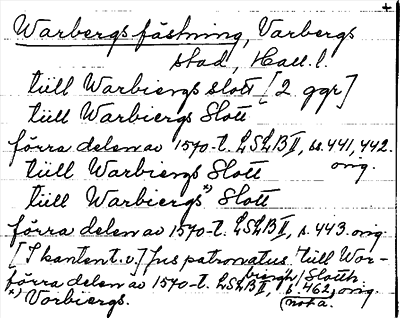 +
Warbergs fästning, Varbergs
stad, Hall. l.
tüll Warbiergs slott [2 ggr]
tüll Warbiergs Slott
förra delen av 1570-t. LSLB II, ss. 441, 442.
orig.
tüll Warbiergs Slott
tüll Warbiergs*) Slott
förra delen av 1570-t. LSLB II, s. 443. orig
[I kanten t.v.] Jus patronatus. tüll War-
biergh / Slotth
förra delen av 1570-t. LSLB II, s. 462, orig.
*) Vorbiergs. nota.